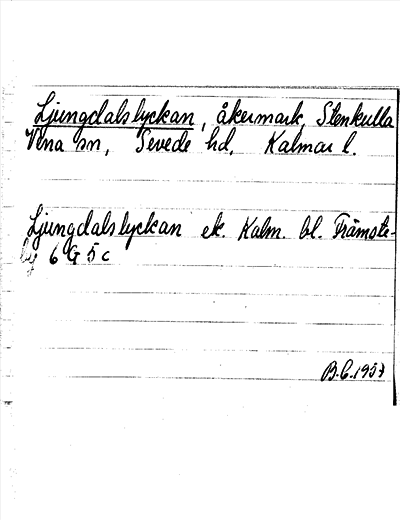 Ljungdalslyckan, åkermark, Stenkulla
Vena sn, Sevede hd, Kalmar l.
Ljungdalslyckan ek. Kalm. bl. Främste-
by 6 G 5 c
B.C. 1957